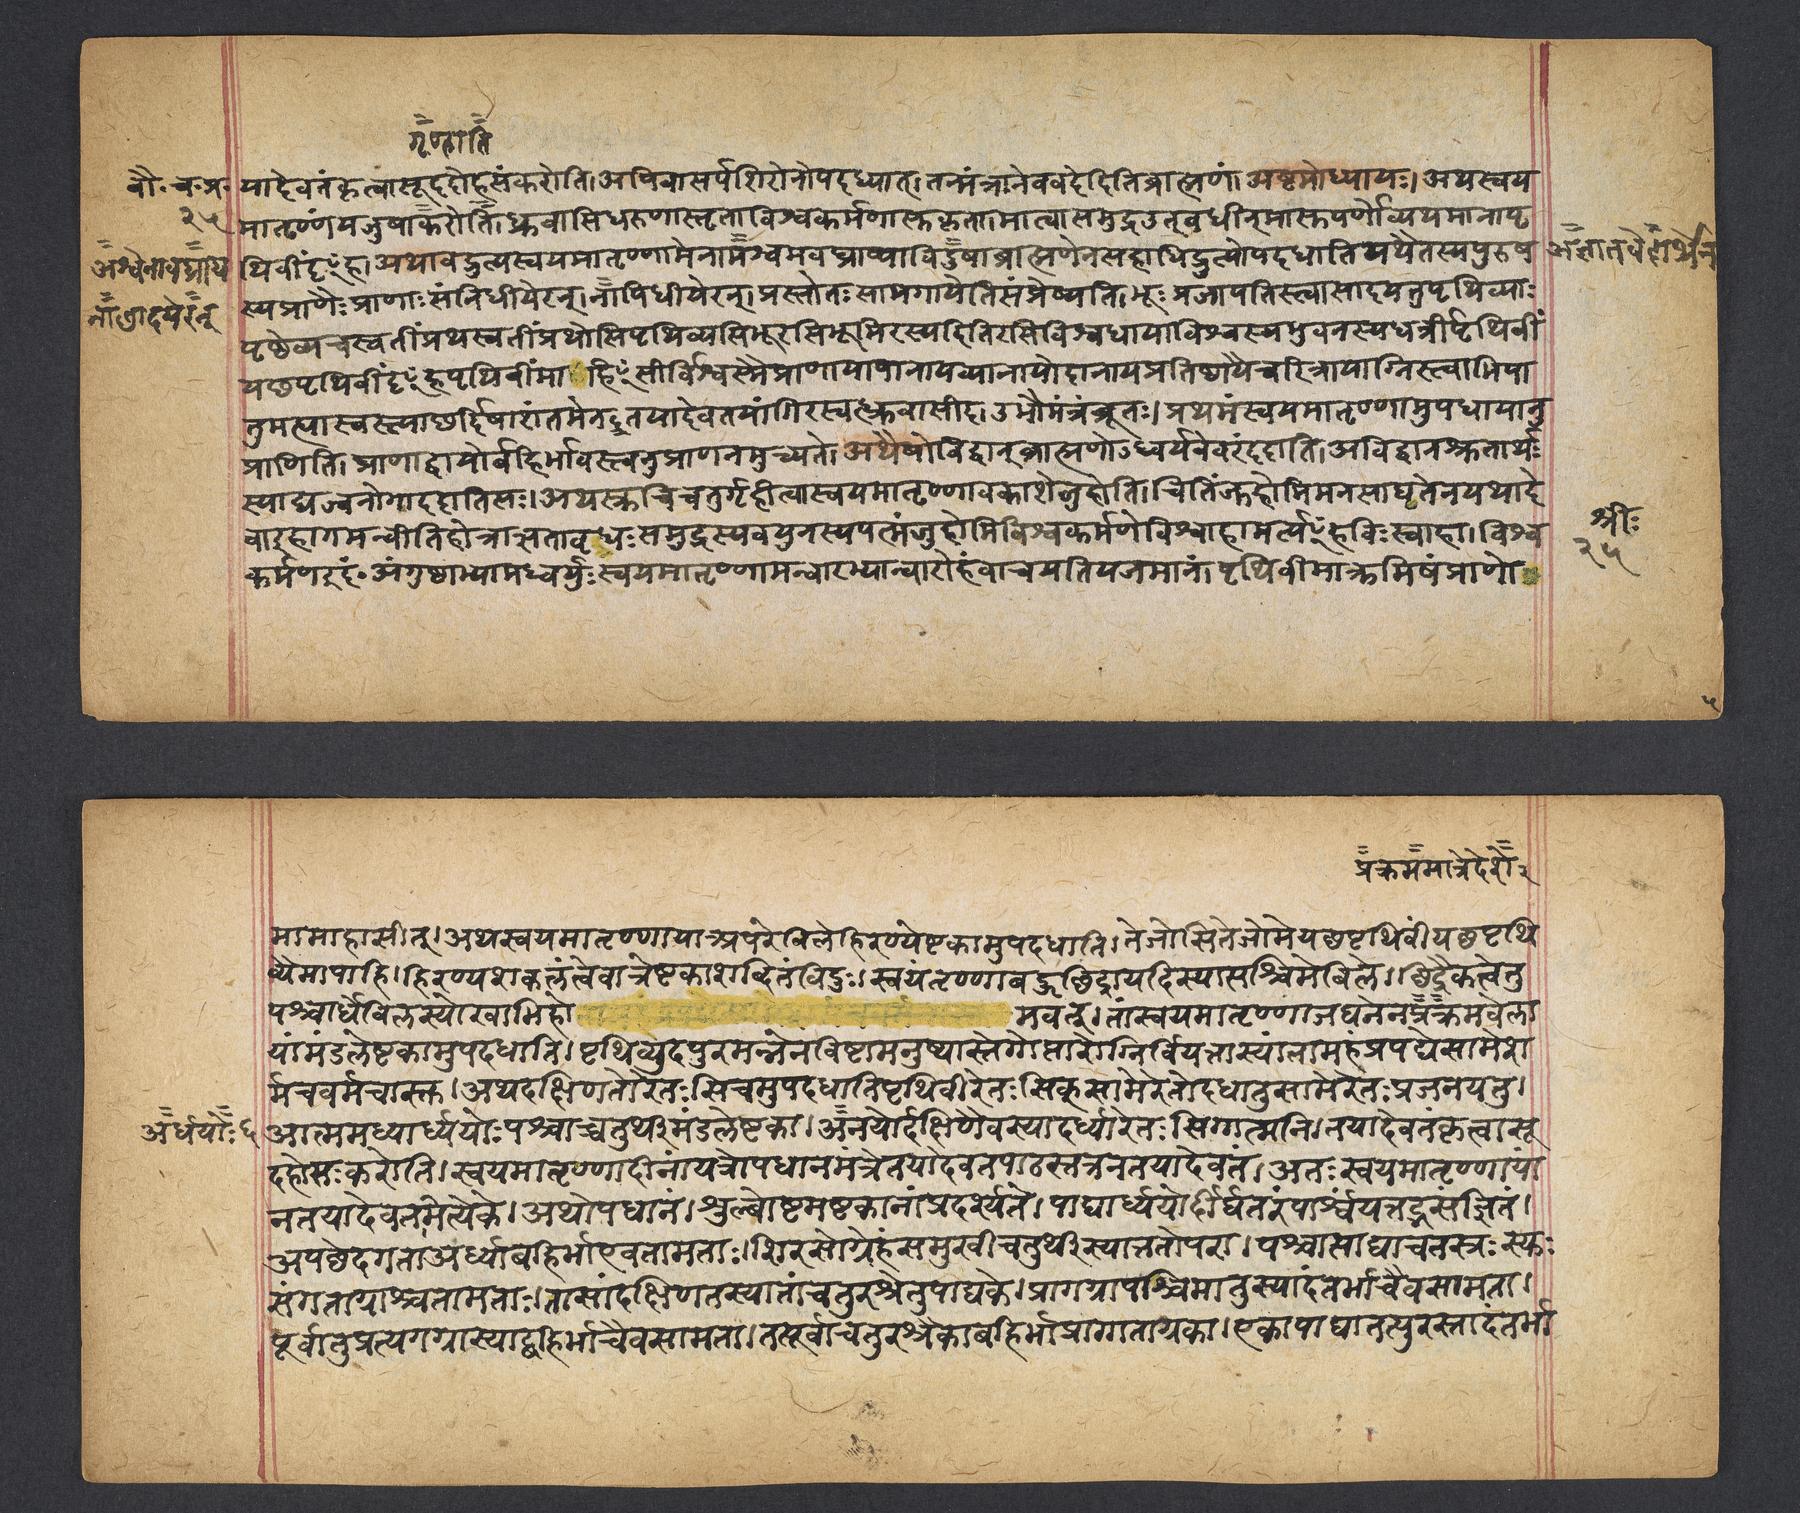 गृण्हाति
बौ॰ च॰ अ॰
२५
यादेवतंकृत्वासूददोहसंकरोति।अपिवासर्पशिरोनोपदध्यात्।तन्मंत्रानेववदेदितिब्राह्मणं।अष्टमोध्यायः।अथस्वय
मातृण्णंयजुषाकरोति।ध्रुवासिधरुणास्तृताविश्वकर्मणासुकृता।मात्वासमुद्रउत्वधीन्मासुपर्णोव्यथमानापृ
अश्वेनावघ्राप्य
थिवींदृꣳह।अथावद्रुत्यस्वयमातृण्णामेनामश्वमवघ्राप्याविदुषाब्राह्मणेनसहाधिद्रुत्योपदधाति
नोपादधेरन्
स्यप्राणैःप्राणाःसंनिधीयेरन्।नापिधीयेरन्।प्रस्तोतःसामगायेतिसंप्रेष्यति।भूःप्रजापतिस्त्वासादयतुपृथिव्याः
पृष्ठेव्यचस्वतींप्रथस्वतींप्रथोसिपृथिव्यसिभूरसिभूमिरस्यदितिरसिविश्वधायाविश्वस्यभुवनस्यधर्त्रीपृथिवीं
यछपृथिवींदृꣳहपृथिवींमाहिꣳसीर्विश्वस्मैप्राणायापानायव्यानायोदानायप्रतिष्ठायैचरित्रायाग्निस्त्वाभिपा
तुमत्यास्वस्त्याछर्दिषाशंतमेनतयादेवतयांगिरस्वद्ध्रुवासीद।उभौमंत्रंब्रूतः।प्रथमंस्वयमातृण्णामुपधायानु
प्राणिति।प्राणाद्वायोर्बहिर्भावस्त्वनुप्राणनमुच्यते।अथैषोविद्वान्ब्राह्मणोऽध्वर्यवेवरंददाति।अविद्वानकृतार्थः
स्याद्यज्वनोगांददातिसः।अथस्रुचिचतुर्गृहीत्वास्वयमातृण्णावकाशेजुहोति।चितिंजुहोमिमनसाघृतेनयथादे
वाइहागमन्वीतिहोत्राऋतावृधःसमुद्रस्यवयुनस्यपत्मंजुहोमिविश्वकर्मणेविश्वाहामर्त्यꣳहविःस्वाहा।विश्व
श्रीः
२५
कर्मणइदं॰अंगुष्ठाभ्यामध्वर्युःस्वयमातृण्णामन्वारभ्यान्वारोहंवाचयतियजमानं।पृथिवीमाक्रमिषंप्राणो
५
प्रक्रममात्रेदेशे२
मामाहासीत्।अथस्वयमातृण्णायाअपरेबिलेहिरण्येष्टकामुपदधाति।तेजोसितेजोमेयछपृथिवींयछपृथि
व्यैमापाहि।हिरण्यशकलंत्वेवात्रेष्टकाशब्दितंविदुः।स्वयंतृण्णाबहुछिद्रायदिस्यात्पश्चिमेबिले।छिद्रैकत्वेतु
पश्चार्धेबिलस्योखाभिहो भवत्।तांस्वयमातृण्णाजघनेनप्रक्रमवेला
यांमंडलेष्टकामुपदधाति।पृथिव्युदपुरमन्नेनविष्टामनुष्यास्तेगोप्तारोग्निर्वियत्तास्यांतामहंप्रपद्येसामेश
र्मचवर्मचास्तु।अथदक्षिणतोरेतःसिचमुपदधातिपृथिवीरेतःसिक्सामेरेतोदधातुसामेरेतःप्रजनयतु।
अर्धयोः६
आत्ममध्यार्ध्ययोःपश्चाच्चतुर्थ्यꣳमंडलेष्टका।अनयोर्दक्षिणैवस्यादर्ध्यारेतःसिगात्मनि।तयादेवतंकृत्वासू
ददोसःकरोति।स्वयमातृण्णादीनांयत्रोपधानमंत्रेतयादेवतपाठस्तत्रनतयादेवतं।अतःस्वयमातृण्णायां
नतयादेवतमित्येके।अथोपधानं।शुल्बोष्टमष्टकानांप्रदर्श्यते।पाद्यार्ध्ययोर्दीर्घतरंपार्श्वंयत्तद्धुसंज्ञितं।
अपछेदगताअर्ध्याबहिर्भाएवतामताः।शिरसोग्रेहंसमुखीचतुर्थीस्यात्ततोपरा।पश्चात्पाद्याचतस्रःस्युः
संगताग्राश्चतामताः।तासांदक्षिणतस्यातांचतुरश्रेतुपाद्यके।प्रागग्रापश्चिमातुस्यादंतर्भाचैवसामता।
पूर्वातुप्रत्यगग्रास्याद्बहिर्भाचैवसामता।तत्पूर्वाचतुरश्रैकाबहिर्भाप्रागाताग्रका।एकापाद्याततपुरस्तादंतर्भा